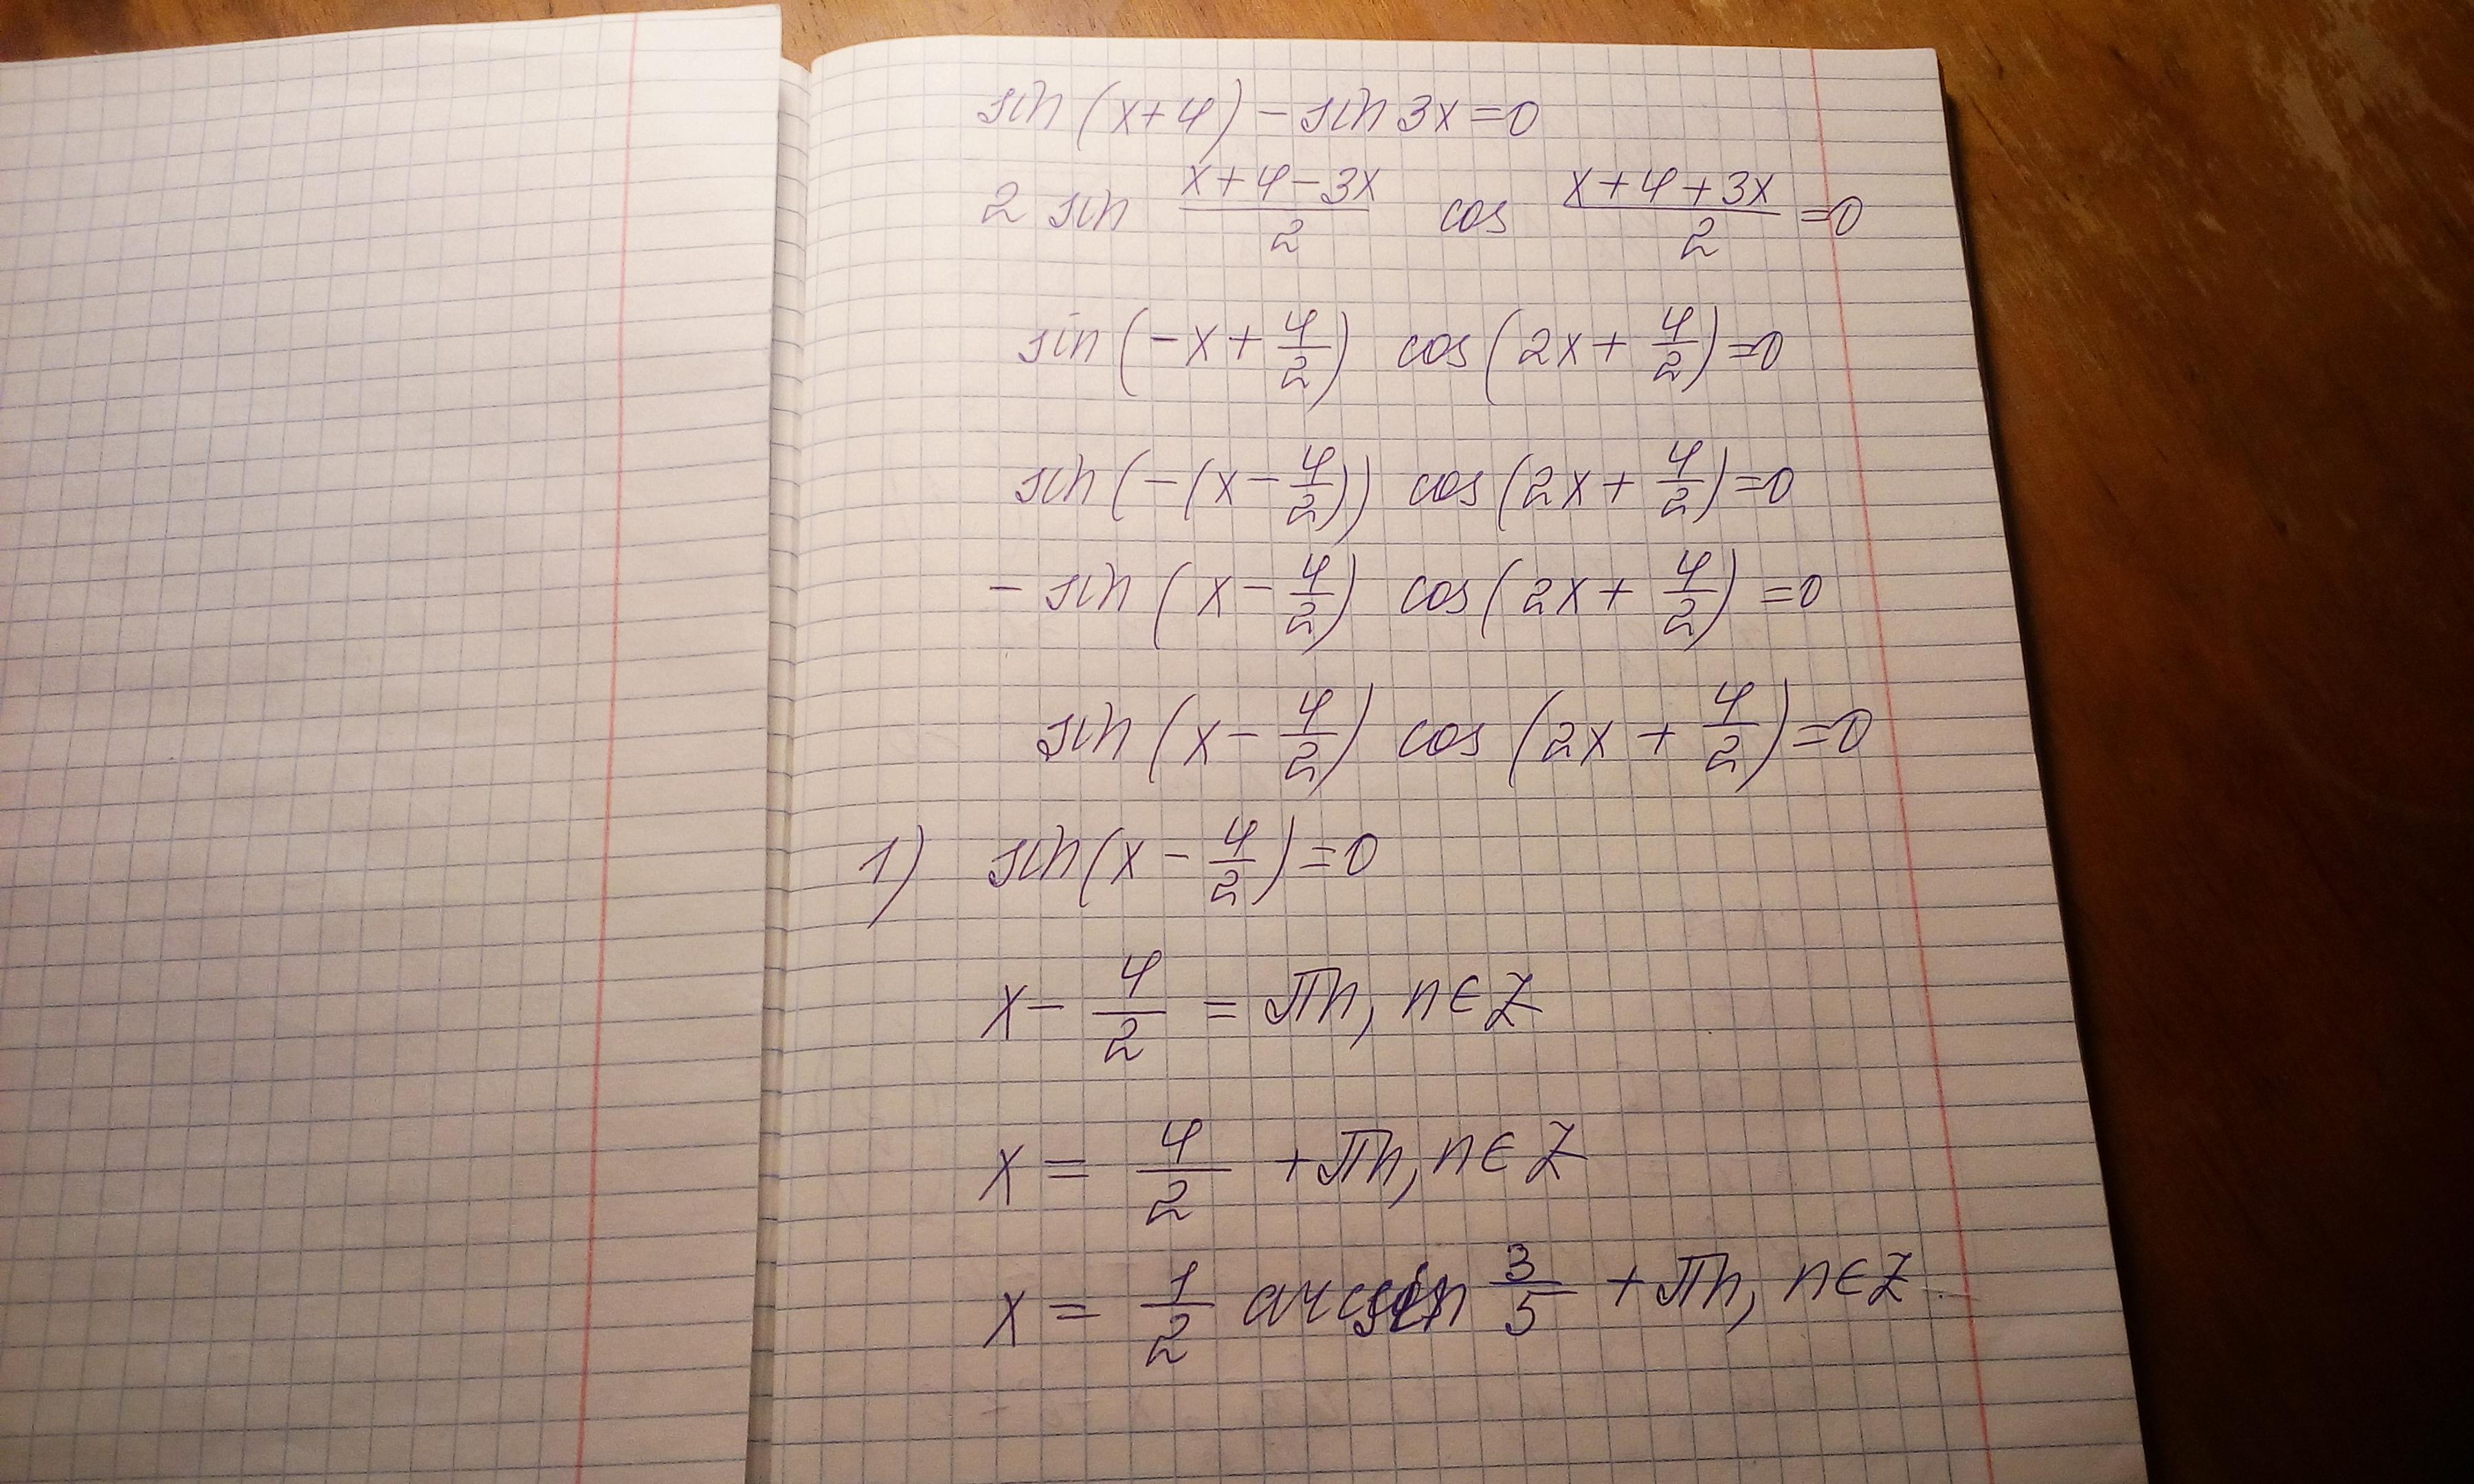 sin(x+φ) - sin 3x = 0
2 sin (x+φ-3x)/2 cos (x+φ+3x)/2 = 0
sin(-x + φ/2) cos(2x + φ/2) = 0
sin(-(x - φ/2)) cos(2x + φ/2) = 0
- sin(x - φ/2) cos(2x + φ/2) = 0
sin(x - φ/2) cos(2x + φ/2) = 0
1) sin(x - φ/2) = 0
x - φ/2 = πn, n∈Z
x = φ/2 + πn, n∈Z
x = 1/2 arcsin 3/5 + πn, n∈Z